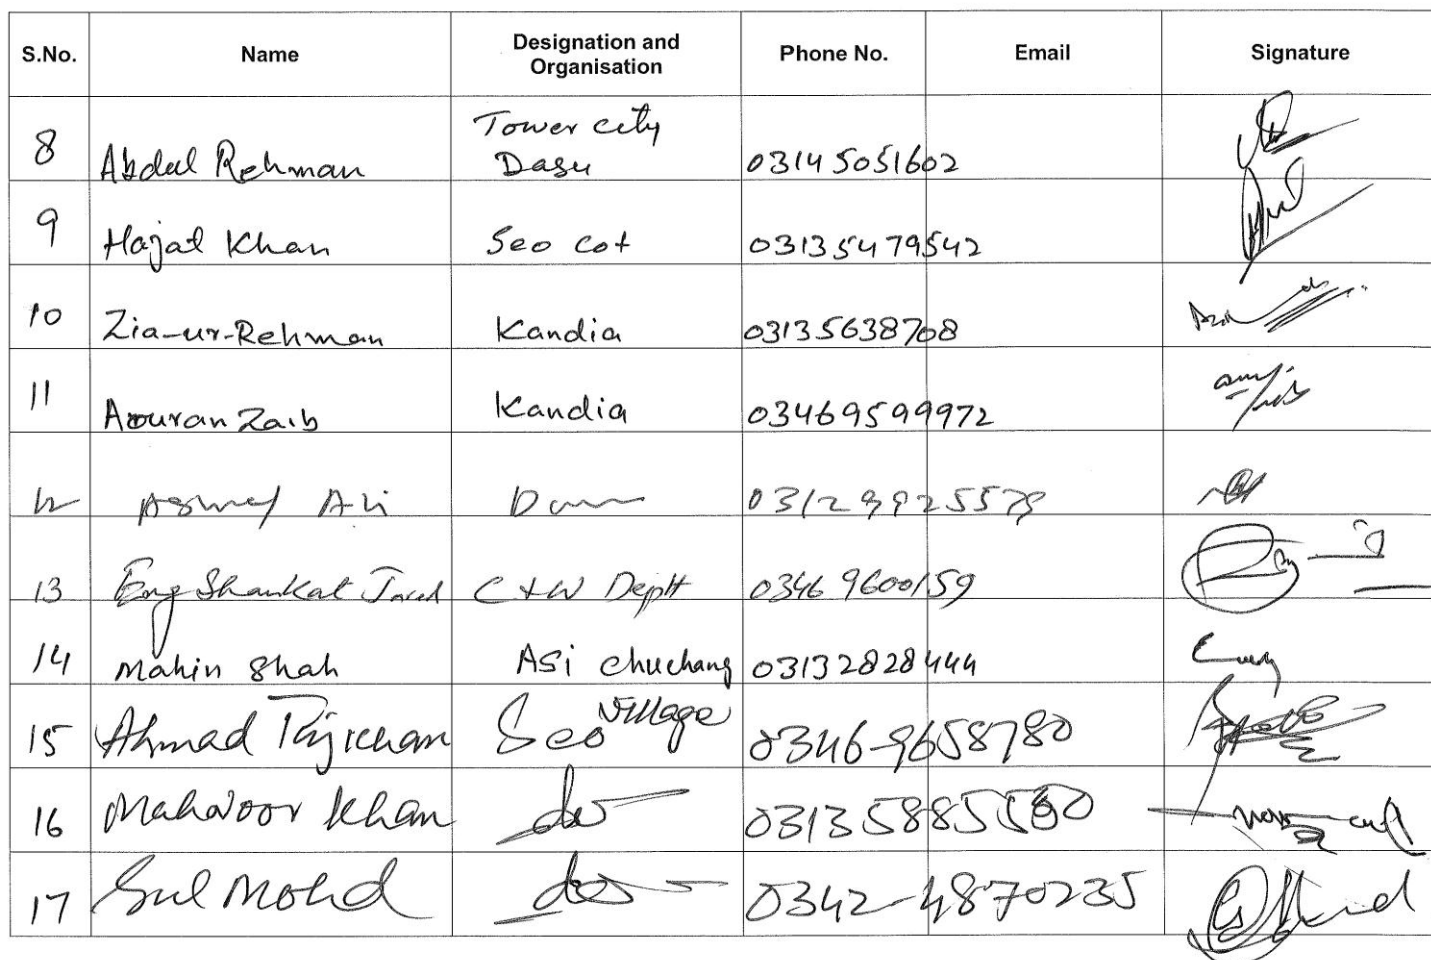 S.No. Name Designation and Organisation Phone No. Email Signature
8 Abdul Rehman Tower city Dasu 03145051602
9 Hajat Khan Seo cot 03135479542
10 Zia-ur-Rehman Kandia 03135638708
11 Aouran Zaib Kandia 03469599972
12 Ali
13 Eng Shaukat Javed C & W Deptt 03469600159
14 Mahin Shah Asi chuchang 03132828444
15 Ahmad Tajkhan Seo Village 0346-9658780
16 Khan do
17 Gul Mohd do 0342-4870235